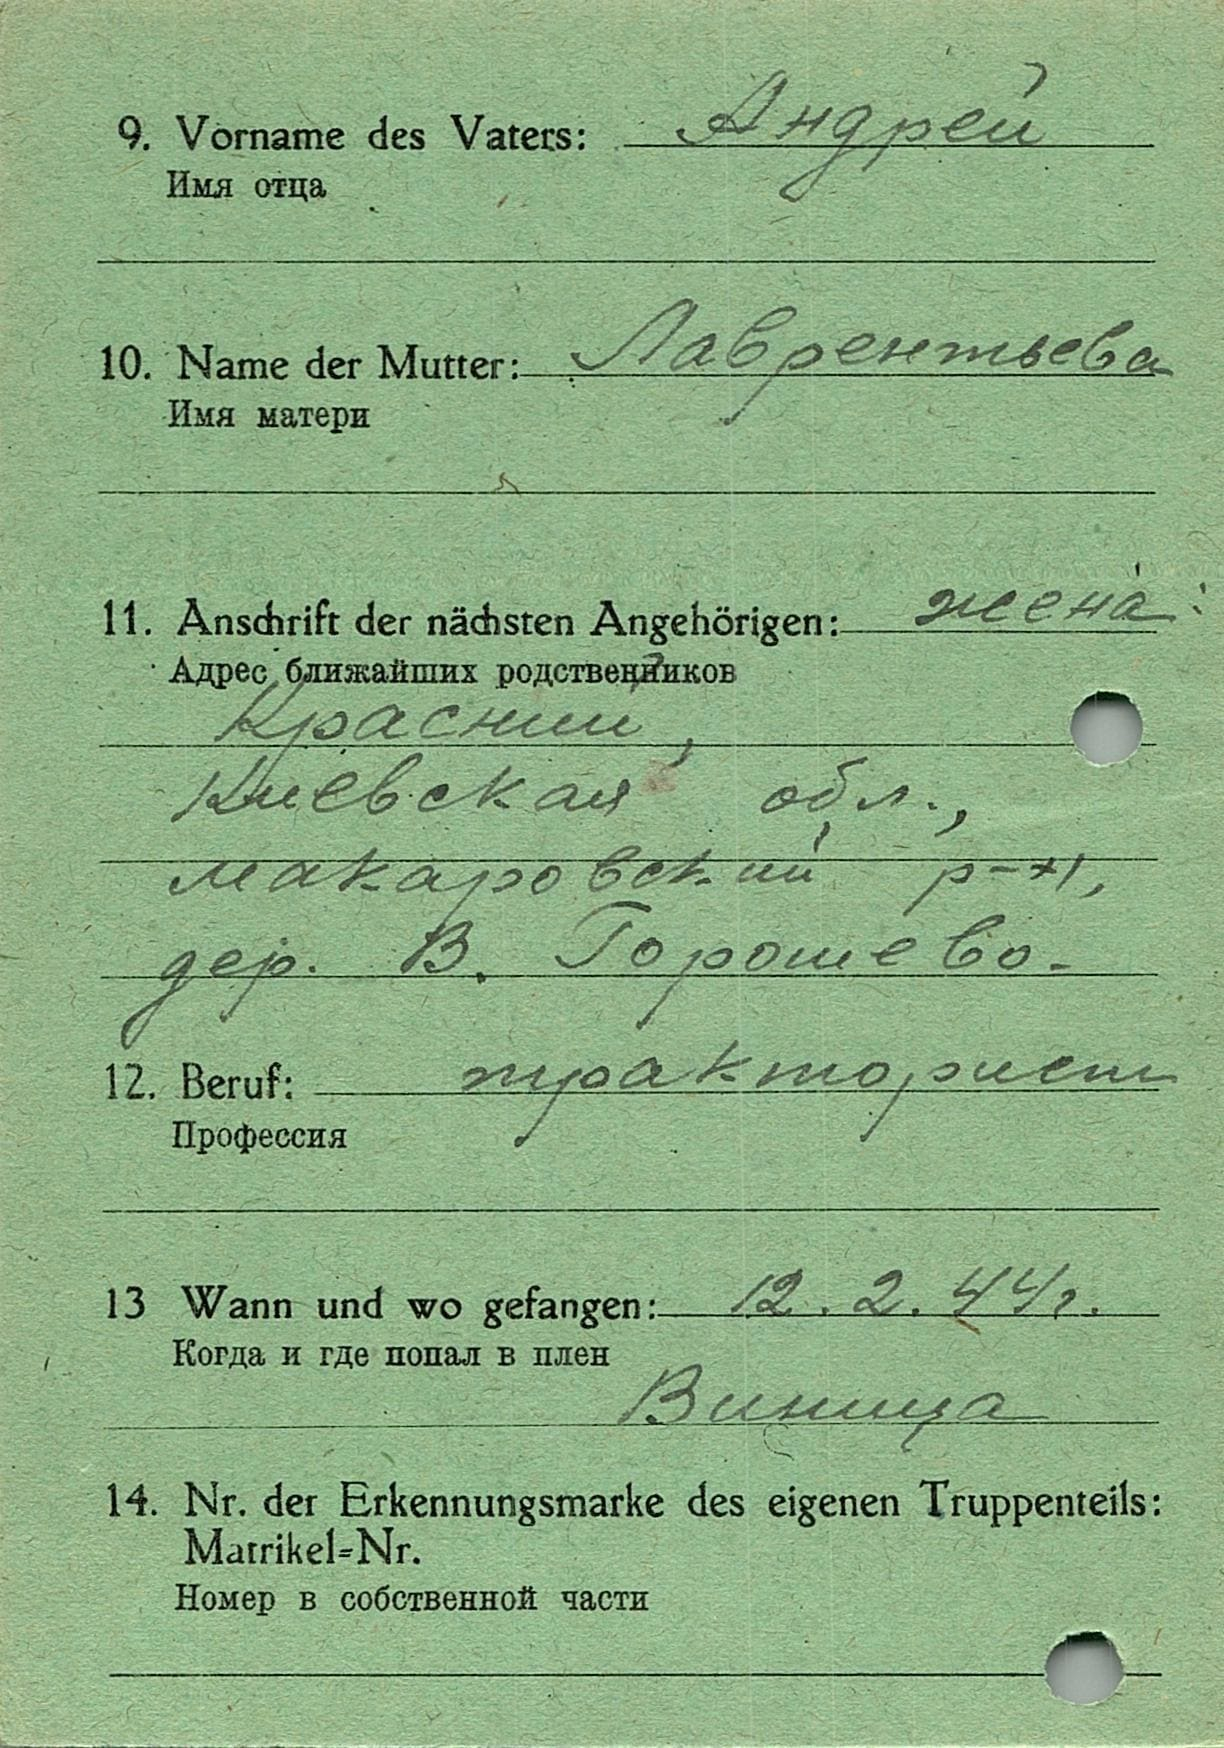 9. Vorname des Vaters: Андрей
Имя отца
10. Name der Mutter: Лаврентьева
Имя матери
11. Anschrift der nächsten Angehörigen: жена:
Адрес ближайших родственников
Красний,
Киевская обл.,
макаровский р-н,
дер. В. Горошево.
12. Beruf: тракторист
Профессия
13 Wann und wo gefangen: 12.2.44г.
Когда и где попал в плен
Виница
14. Nr. der Erkennungsmarke des eigenen Truppenteils:
Matrikel=Nr.
Номер в собственной части